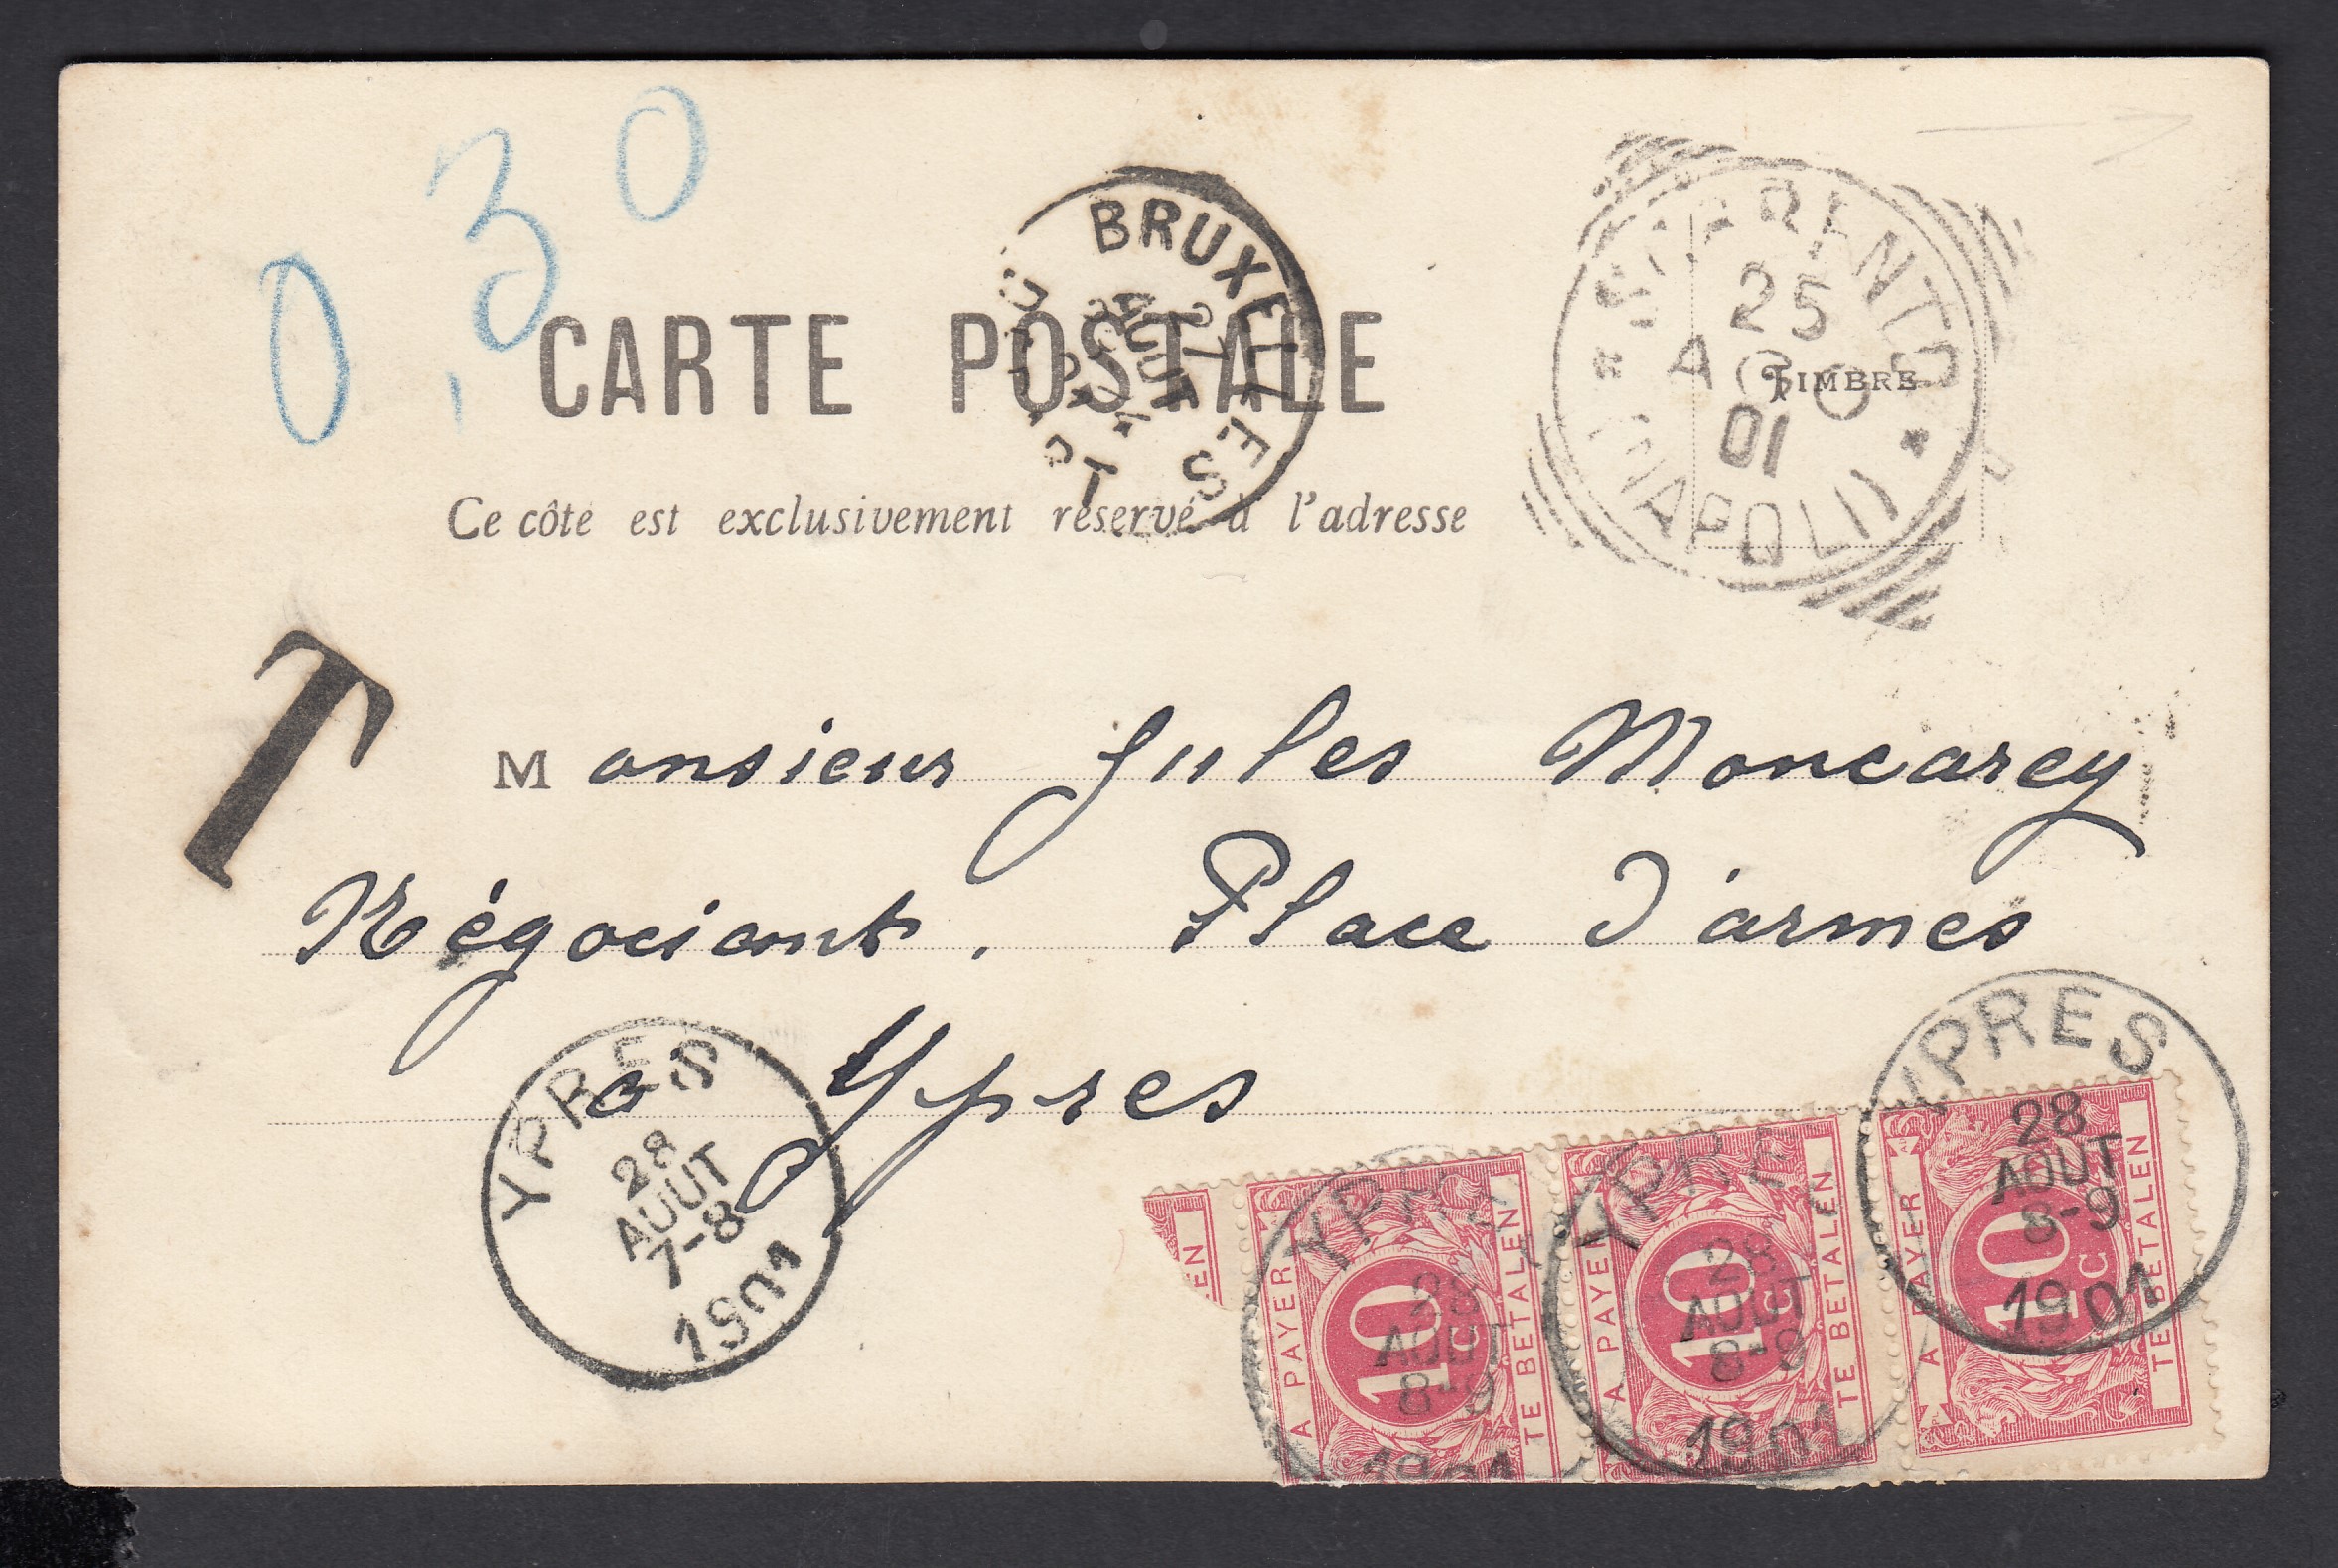 0,30
CARTE POSTALE
BRUXELLES
27
AOUT
SORRENTO
(NAPOLI)
25
AGO
01
TIMBRE
Ce côté est exclusivement réservé à l'adresse
T
Monsieur Jules Moncarey
Négociant. Place d'armes
à Ypres
YPRES
28
AOUT
7-8
1901
EN
YPRES
28
AOUT
8-9
1901
A PAYER
10 C
TE BETALEN
YPRES
28
AOUT
8-9
1901
A PAYER
10 C
TE BETALEN
YPRES
28
AOUT
8-9
1901
A PAYER
10 C
TE BETALEN